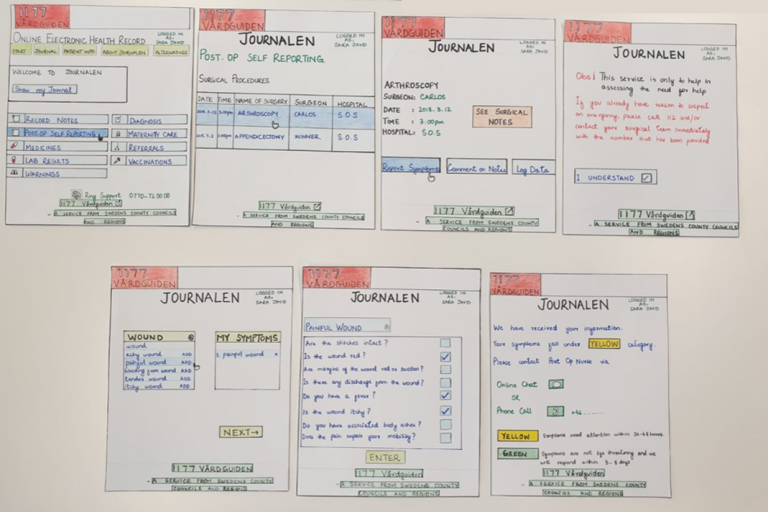 1177
VÅRDGUIDEN
ONLINE ELECTRONIC HEALTH RECORD
LOGGED IN
AS:
SARA JAND
START
JOURNAL
PATIENT INFO
ABOUT JOURNALEN
ALTERNATIVES
WELCOME TO JOURNALEN
Show my Journal
RECORD NOTES
DIAGNOSIS
POST-OP SELF REPORTING
MATERNITY CARE
MEDICINES
REFERRALS
LAB RESULTS
VACCINATIONS
WARNINGS
Ring Support 0770-72 00 00
1177 Vårdguiden
- A SERVICE FROM SWEDENS COUNTY COUNCILS
AND REGIONS
1177
VÅRDGUIDEN
JOURNALEN
LOGGED IN
AS:
SARA JAND
POST. OP SELF REPORTING
SURGICAL PROCEDURES
DATE TIME NAME OF SURGERY SURGEON HOSPITAL
ARTHROSCOPY CARLOS S.O.S
APPENDICECTOMY WINNER S.O.S
1177 Vårdguiden
- A SERVICE FROM SWEDENS COUNTY COUNCILS
AND REGIONS
1177
VÅRDGUIDEN
JOURNALEN
LOGGED IN
AS:
SARA JAND
ARTHROSCOPY
SURGEON: CARLOS
DATE : 2018.3.12
TIME : 3.00pm
HOSPITAL: S.O.S
SEE SURGICAL
NOTES
Report Symptoms
Comment on Notes
Log Data
1177 Vårdguiden
- A SERVICE FROM SWEDENS COUNTY
COUNCILS AND REGIONS
1177
VÅRDGUIDEN
JOURNALEN
LOGGED IN
AS:
SARA JAND
Obs! This service is only to help in
assessing the need for help
If you already have reason to suspect
an emergency, please call 112 and/or
contact your surgical team immediately
with the number that has been provided
I UNDERSTAND
1177 Vårdguiden
- A SERVICE FROM SWEDENS COUNTY COUNCILS
AND REGIONS
1177
VÅRDGUIDEN
JOURNALEN
LOGGED IN
AS:
SARA JAND
WOUND
wound
achy wound ADD
painful wound ADD
oozing from wound ADD
tender wound ADD
itchy wound ADD
MY SYMPTOMS
painful wound
NEXT→
1177 VÅRDGUIDEN
- A SERVICE FROM SWEDENS COUNTY
COUNCILS AND REGIONS
1177
VÅRDGUIDEN
JOURNALEN
LOGGED IN
AS:
SARA JAND
PAINFUL WOUND
Are the stitches intact?
Is the wound red?
Are margins of the wound red or swollen?
Is there any discharge from the wound?
Do you have a fever?
Is the wound itchy?
Do you have associated body aches?
Does the pain impair your mobility?
ENTER
1177 Vårdguiden
- A SERVICE FROM SWEDENS COUNTY
COUNCILS AND REGIONS
1177
VÅRDGUIDEN
JOURNALEN
LOGGED IN
AS:
SARA JAND
We have received your information.
Your symptoms fall under YELLOW category.
Please contact Post Op Nurse via
Online Chat
OR
Phone Call +46
YELLOW Symptoms need attention within
GREEN Symptoms are not life threatening and we
will respond within
1177 Vårdguiden
- A SERVICE FROM SWEDENS COUNTY
COUNCILS AND REGIONS